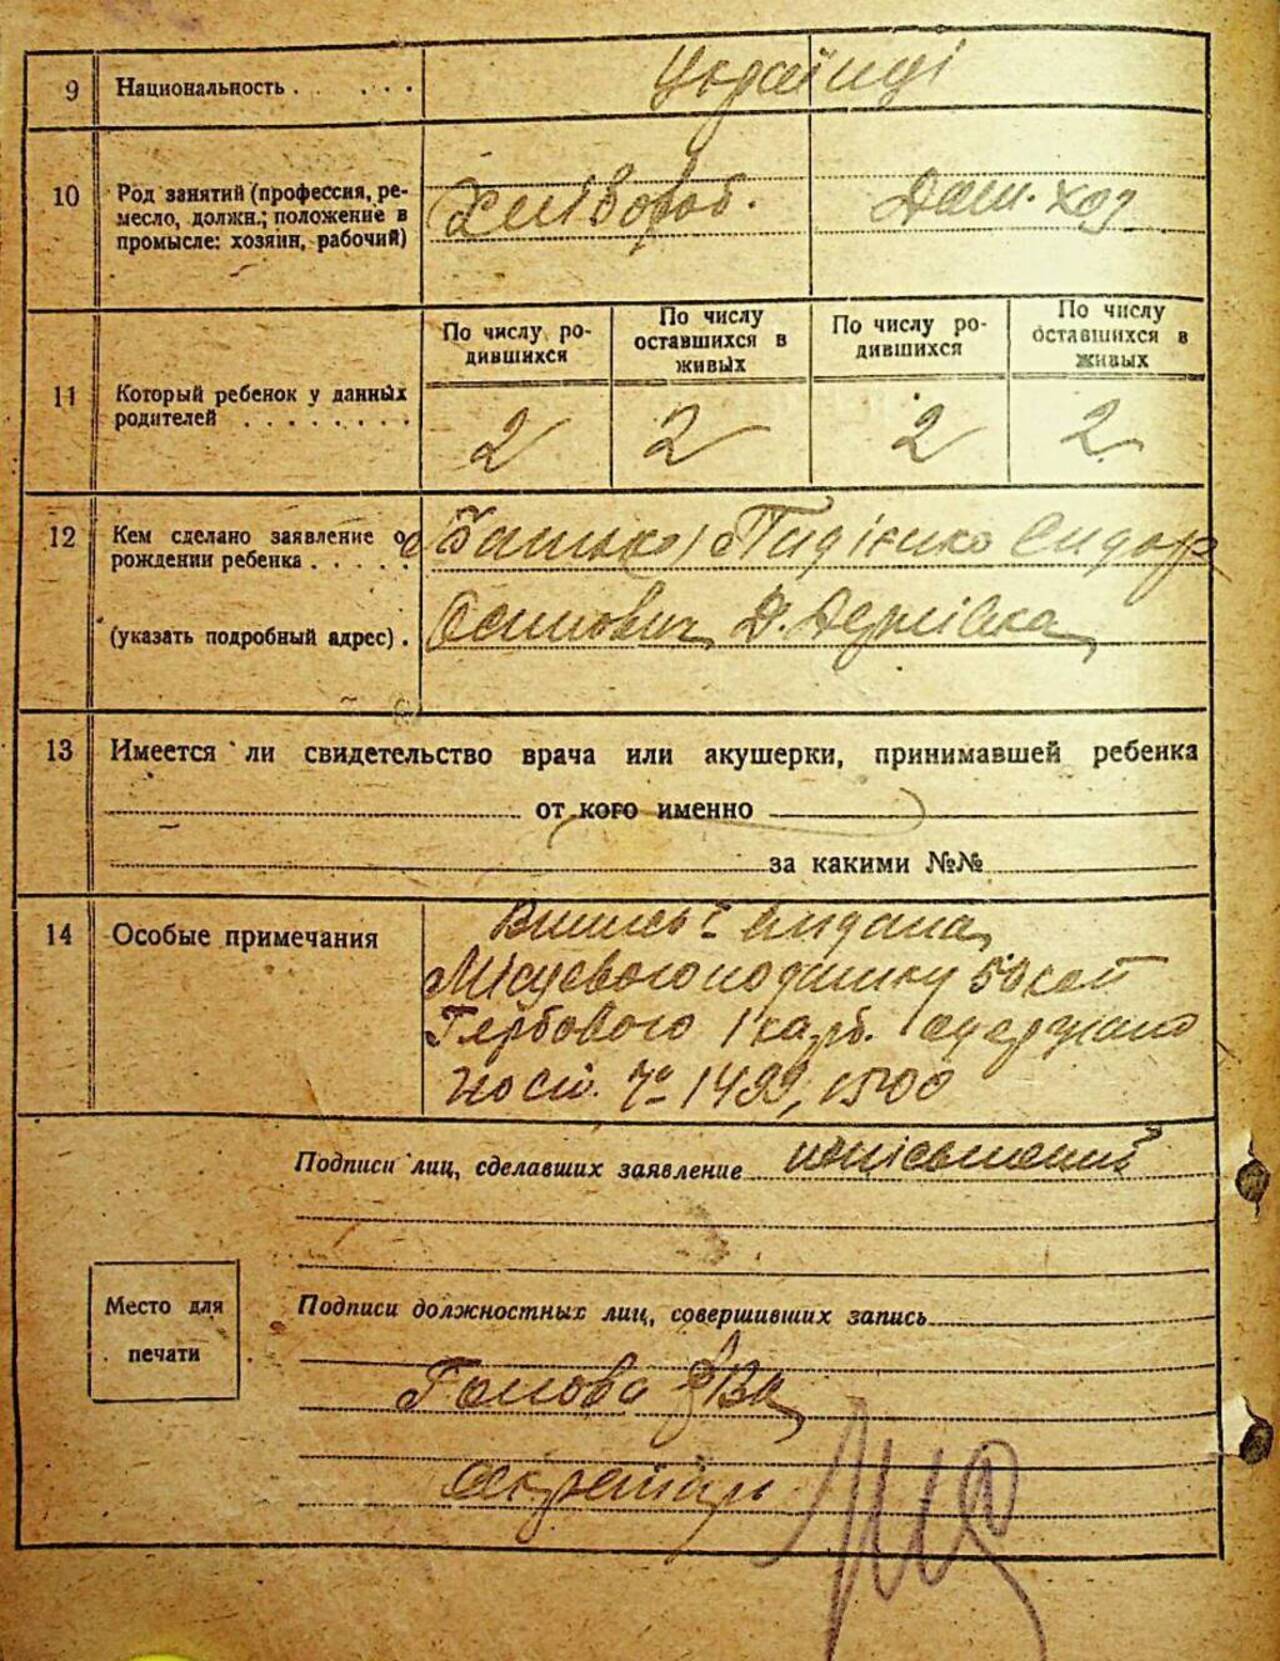 9 Национальность . . . . . Українці
10 Род занятий (профессия, ре-
месло, должн.; положение в
промысле: хозяин, рабочий)
Хлібороб. Дом. хоз
11 Который ребенок у данных
родителей . . . . . . . .
По числу ро-
дившихся
По числу
оставшихся в
живых
По числу ро-
дившихся
По числу
оставшихся в
живых
2 2 2 2
12 Кем сделано заявление о
рождении ребенка . . . . .
(указать подробный адрес) .
Батько Сидор
Осипович Д.
13 Имеется ли свидетельство врача или акушерки, принимавшей ребенка
от кого именно
за какими №№
14 Особые примечания
видана
Місцевого податку 50 коп
Гербового 1 карб. одержано
1499, 1500
Подписи лиц, сделавших заявление неписьменний
Место для
печати
Подписи должностных лиц, совершивших запись
Голова
секретарь